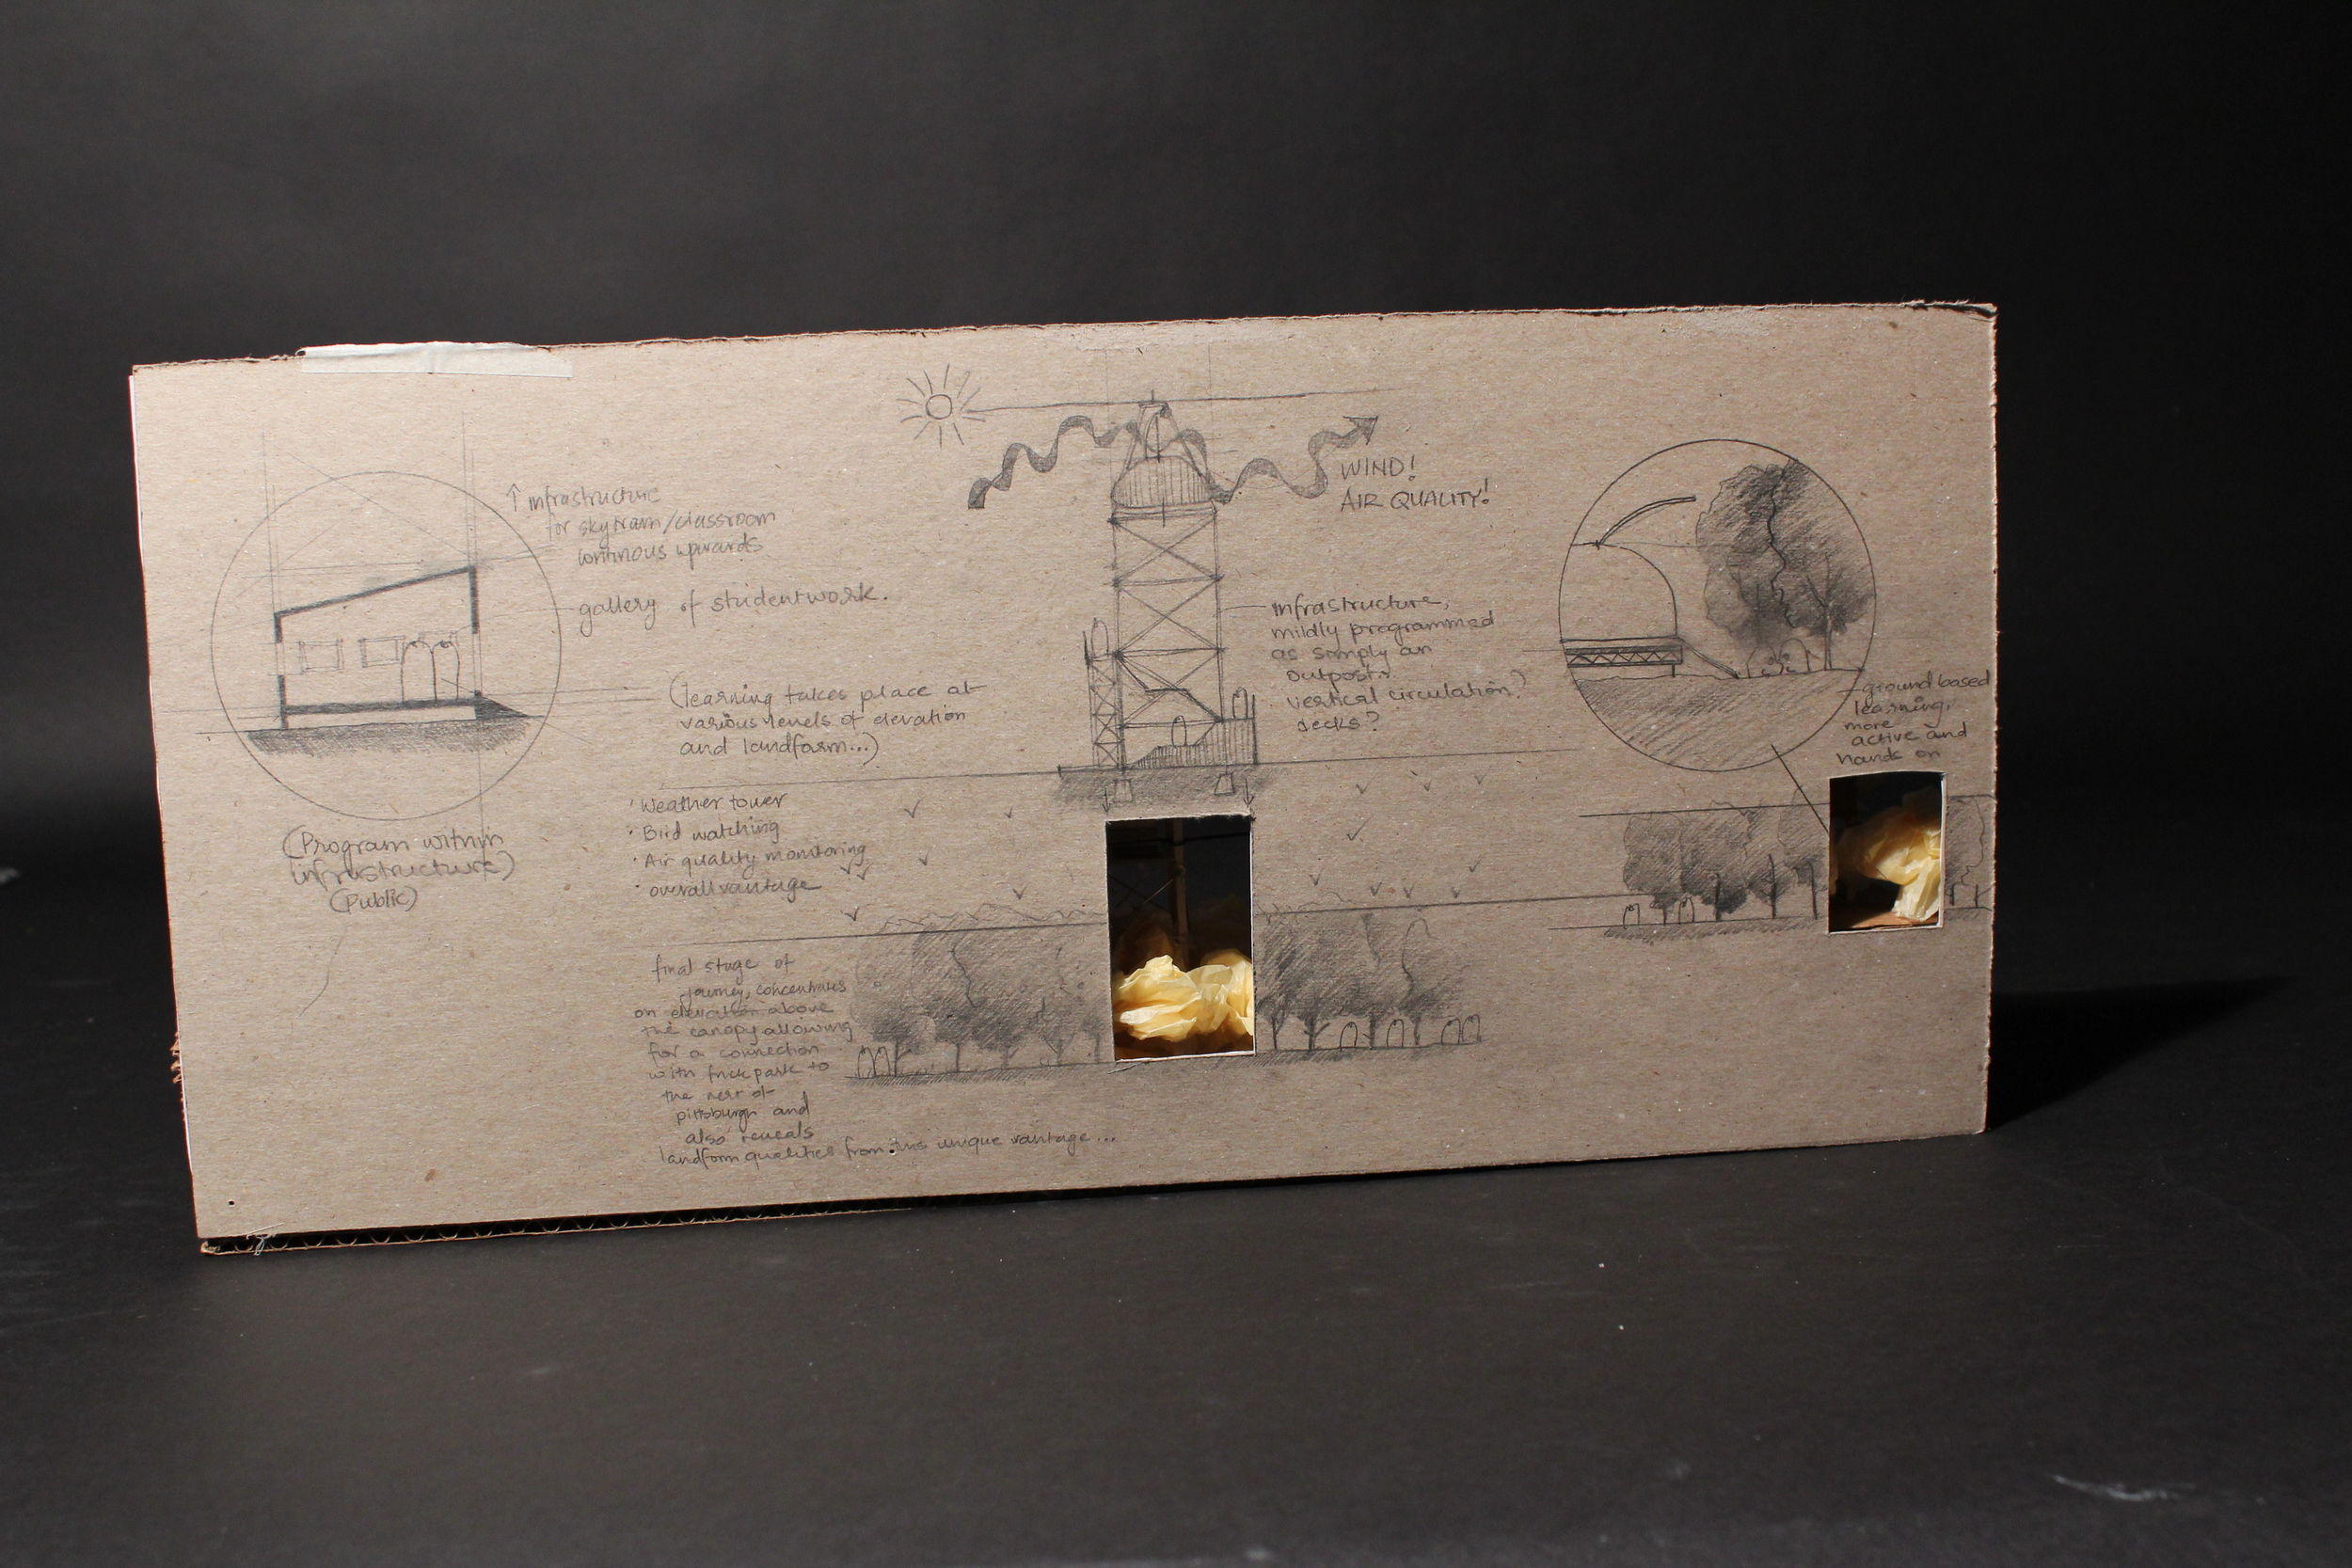 ↑ infrastructure
for skytram/classroom
continous upwards
gallery of studentwork.
(learning takes place at
various levels of elevation
and landform...)
(Program within
infrastructure)
(Public)
WIND!
AIR QUALITY!
infrastructure,
mildly programmed
as simply an
outpost.
vertical circulation?
decks?
ground based
learning,
more
active and
hands on
· Weather tower
· Bird watching
· Air quality monitoring
· overall vantage
final stage of
journey, concentrates
on elevation above
the canopy allowing
for a connection
with frick park to
the rest of
pittsburgh and
also reveals
landform qualities from this unique vantage...